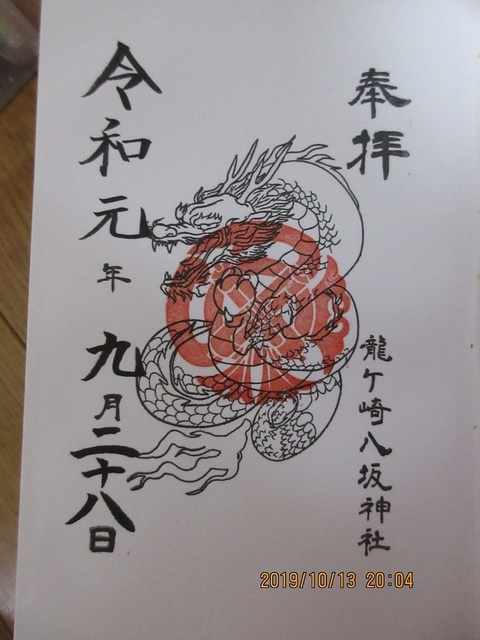 奉拝
龍ケ崎八坂神社
令和元年九月二十八日
2019/10/13 20:04